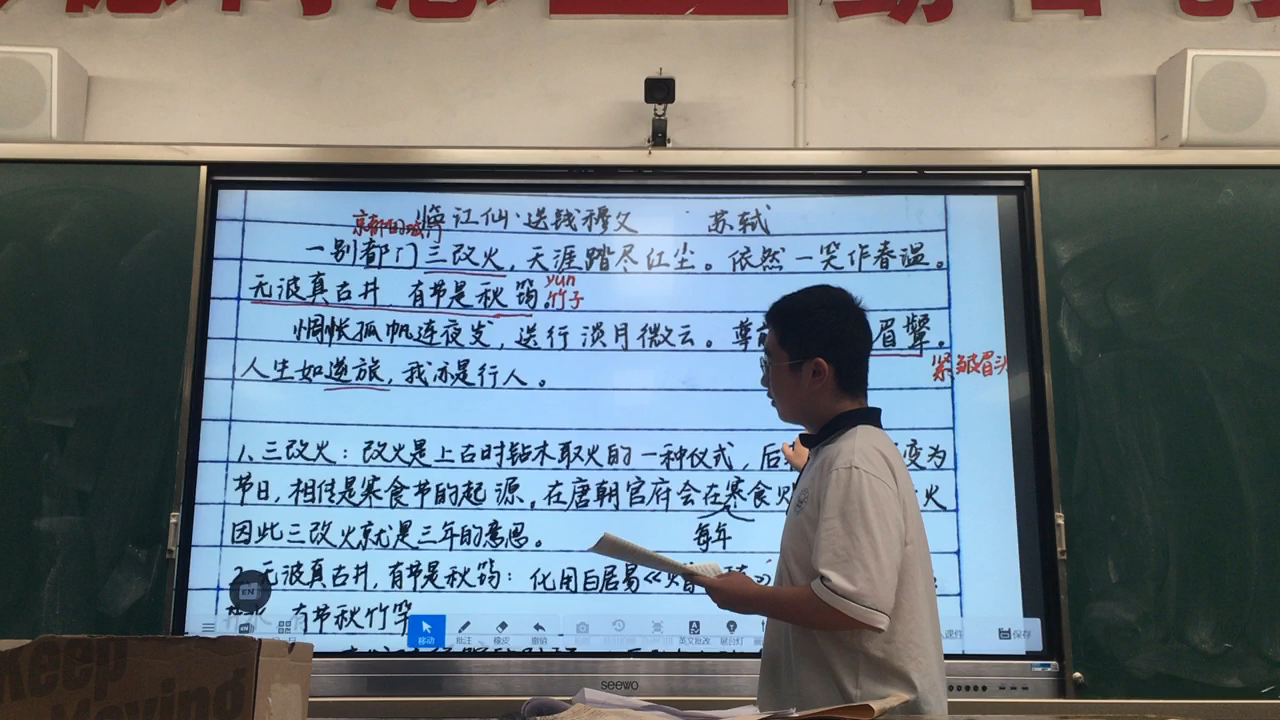 临江仙·送钱穆父 苏轼
一别都门三改火,天涯踏尽红尘。依然一笑作春温。
无波真古井 有节是秋筠。
yun
竹子
惆怅孤帆连夜发,送行淡月微云。尊前
眉颦。
紧皱眉头
人生如逆旅,我亦是行人。
1、三改火:改火是上古时钻木取火的一种仪式,后
变为
节日,相传是寒食节的起源,在唐朝官府会在寒食
火
每年
因此三改火就是三年的意思。
2、无波真古井,有节是秋筠:化用白居易《
有节秋竹竿
EN
移动
批注
橡皮
撤销
英文批改
展台灯
保存
seewo
Keep
Moving